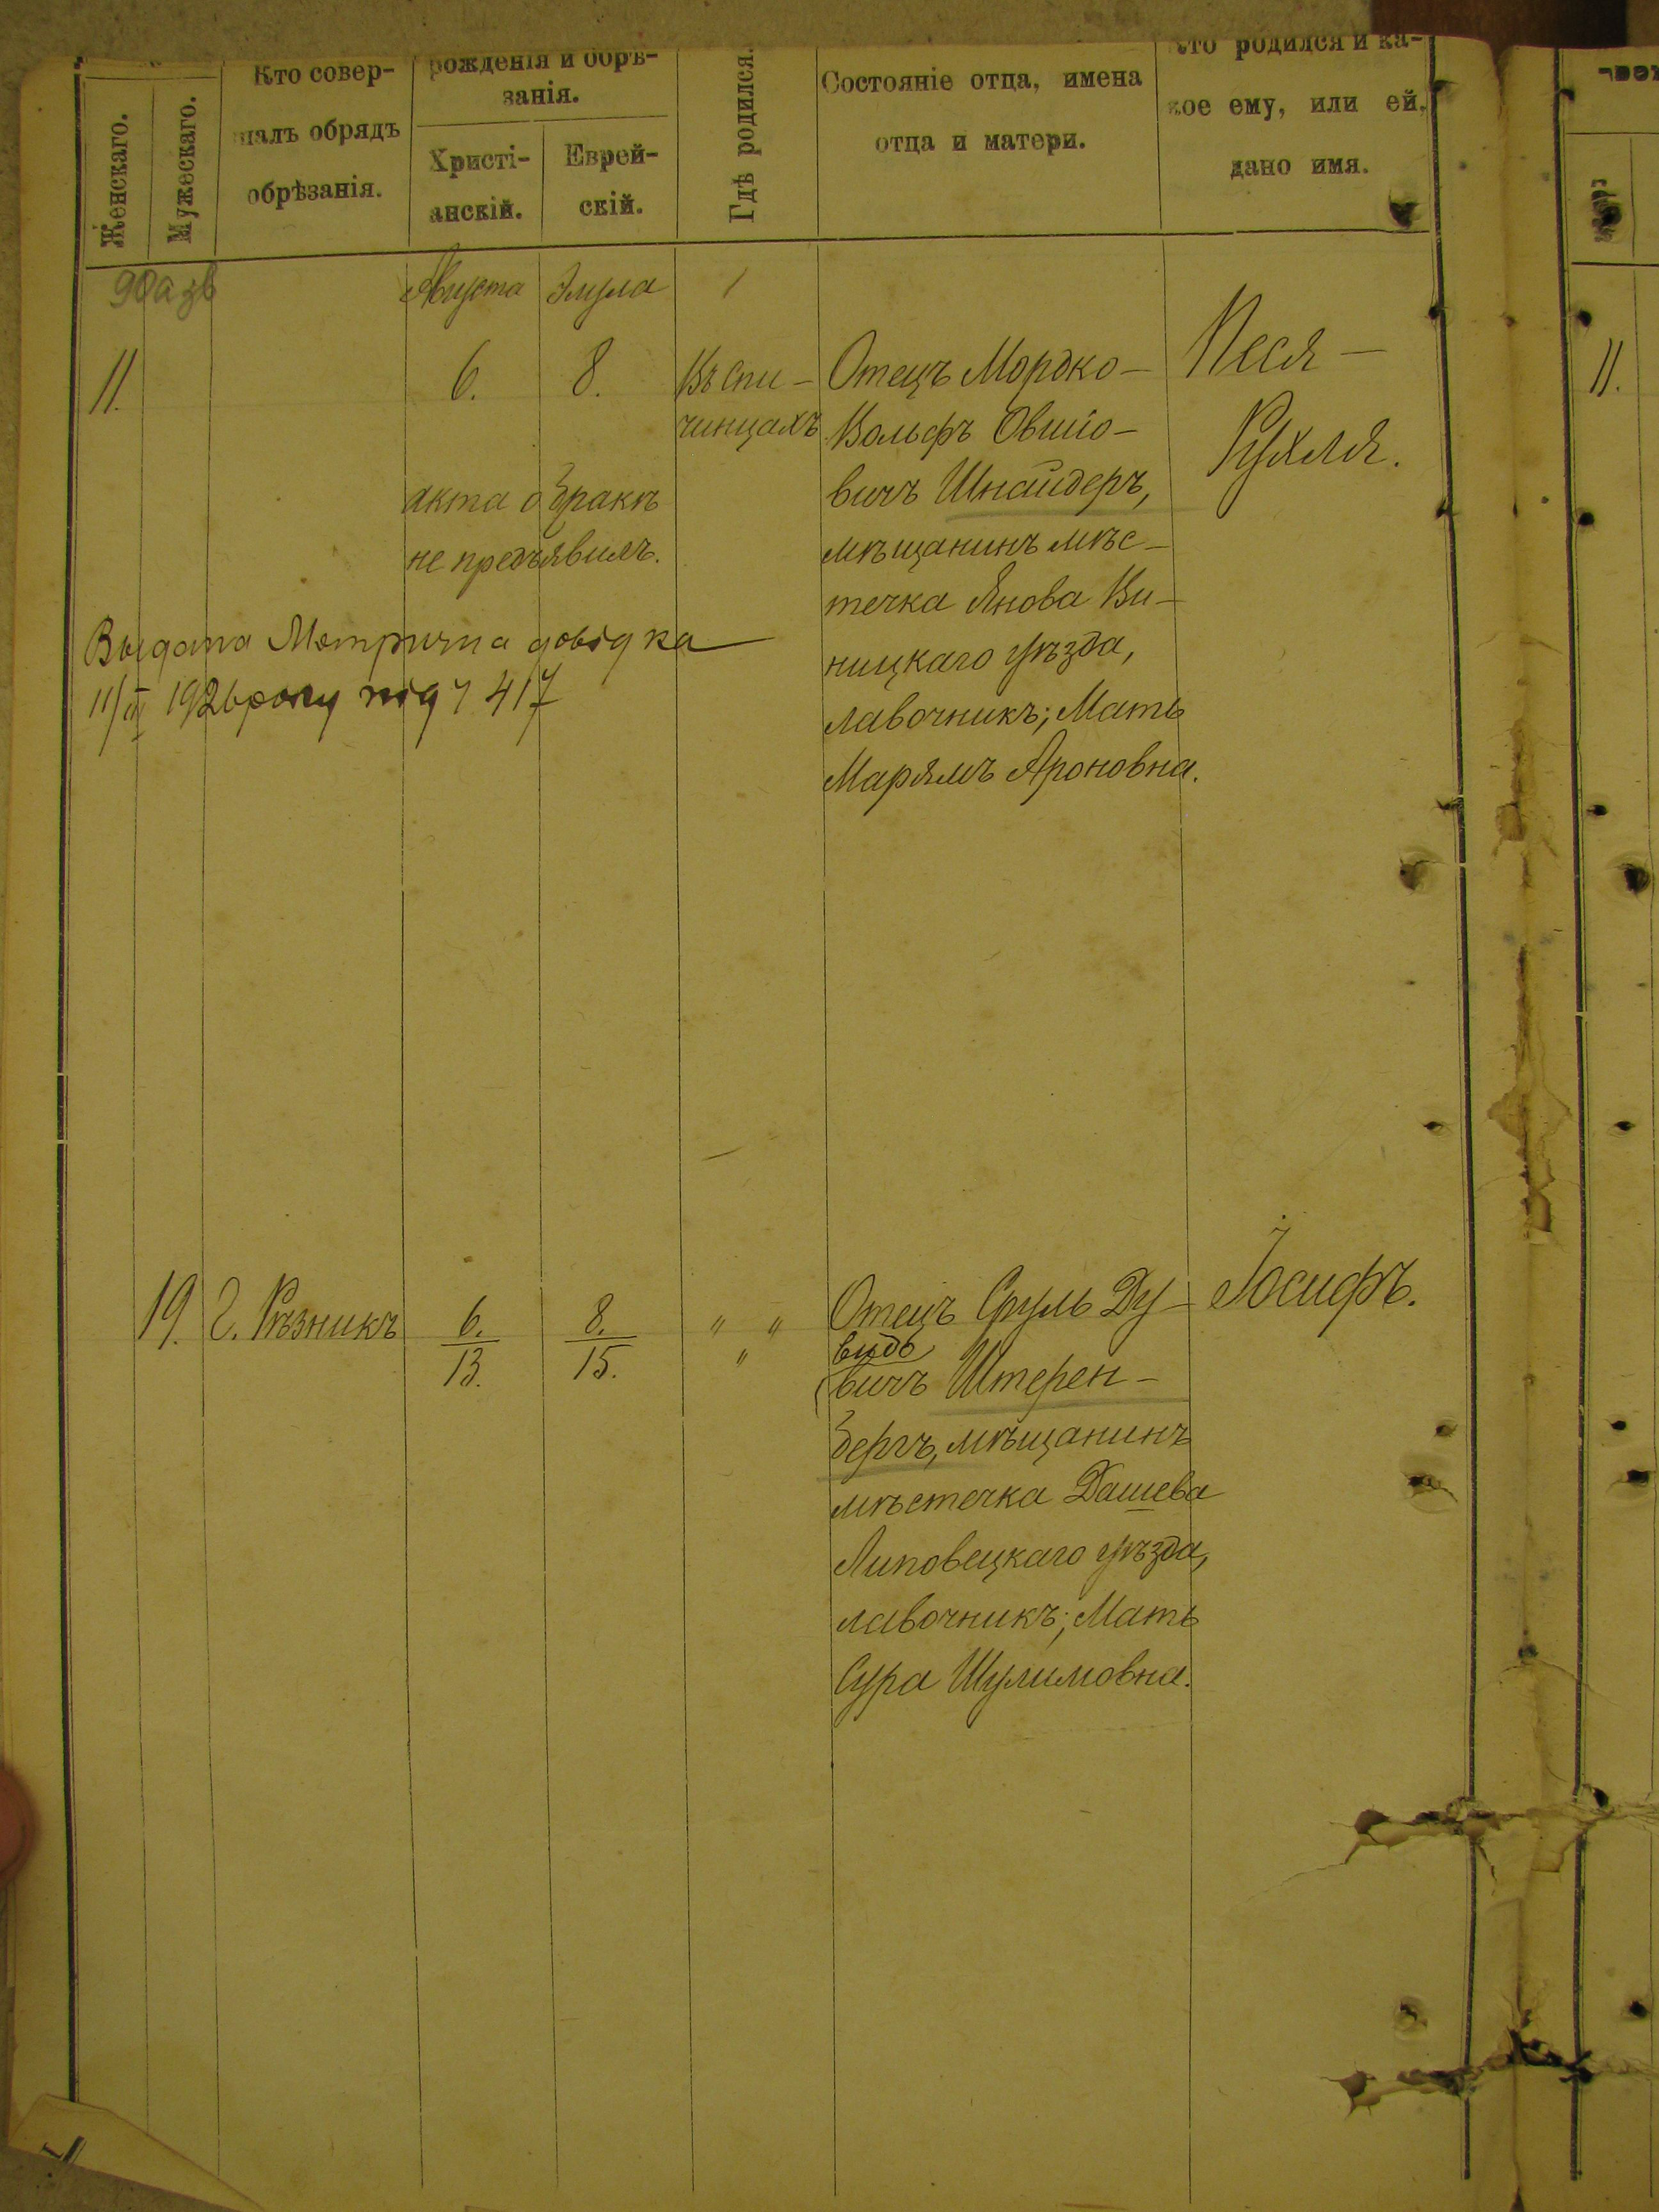 Женскаго.
Мужескаго.
Кто совер-
шалъ обрядъ
обрѣзанія.
рожденія и обрѣ-
занія.
Христі-
анскій.
Еврей-
скій.
Гдѣ родился.
Состояніе отца, имена
отца и матери.
кто родился и ка-
кое ему, или ей,
дано имя.
Августа Элула
11. 6. 8.
Въ Спи-
чинцахъ
Отецъ Мордко-
Вольфъ Овшіо-
вичъ Шнайдеръ,
мѣщанинъ мѣс-
течка Янова Ви-
ницкаго уѣзда,
лавочникъ; Мать
Марямъ Ароновна.
Песя-
Рухля.
акта о бракѣ
не предъявилъ.
Выдана Метрична довідка
11/II 1926 року під ч 417
11.
19. Г. Рѣзникъ 6./13. 8./15. " " "
Отецъ Сруль Ду-
видо
вичъ Штерен-
бергъ, мѣщанинъ
мѣстечка Дашева
Липовецкаго уѣзда,
лавочникъ; Мать
Сура Шулимовна.
Іосифъ.